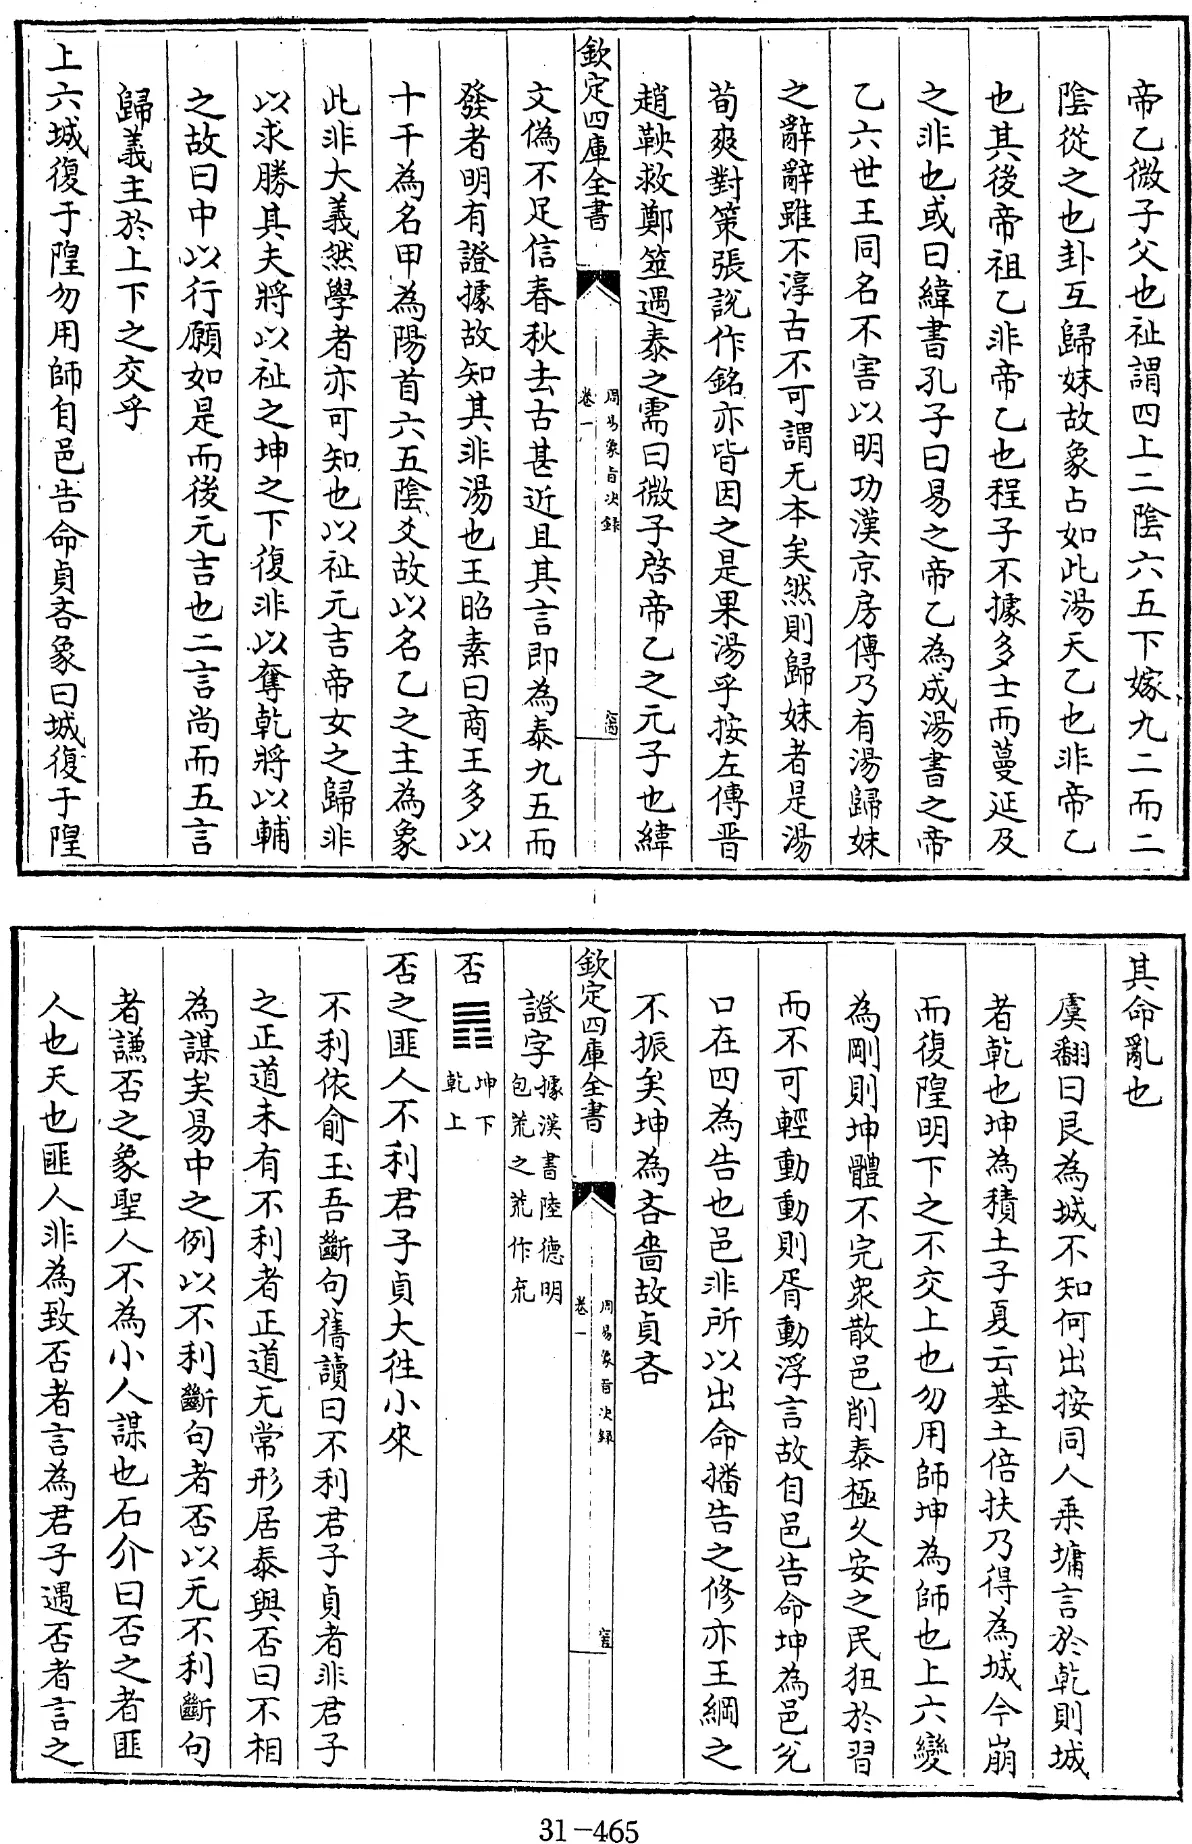 帝乙微子父也祉謂四上二陰六五下嫁九二而二
陰從之也卦互歸妹故象占如此湯天乙也非帝乙
也其後帝祖乙非帝乙也程子不據多士而蔓延及
之非也或曰緯書孔子曰易之帝乙為成湯書之帝
乙六世王同名不害以明功漢京房傳乃有湯歸妹
之辭辭雖不淳古不可謂无本矣然則歸妹者是湯
荀爽對策張說作銘亦皆因之是果湯乎按左傳晋
趙鞅救鄭筮遇泰之需曰微子啓帝乙之元子也緯
欽定四庫全書
周易象旨決録
卷一
文偽不足信春秋去古甚近且其言即為泰九五而
發者明有證據故知其非湯也王昭素曰商王多以
十干為名甲為陽首六五陰爻故以名乙之主為象
此非大義然學者亦可知也以祉元吉帝女之歸非
以求勝其夫將以祉之坤之下復非以奪乾將以輔
之故曰中以行願如是而後元吉也二言尚而五言
歸義主於上下之交乎
上六城復于隍勿用師自邑告命貞吝象曰城復于隍
其命亂也
虞翻曰艮為城不知何出按同人乗墉言於乾則城
者乾也坤為積土子夏云基土倍扶乃得為城今崩
而復隍明下之不交上也勿用師坤為師也上六變
為剛則坤體不完衆散邑削泰極久安之民狃於習
而不可輕動動則胥動浮言故自邑告命坤為邑兊
口在四為告也邑非所以出命播告之修亦王綱之
不振矣坤為吝嗇故貞吝
欽定四庫全書
周易象旨決録
卷一
證字據漢書陸德明
包荒之荒作巟
否䷋坤下
乾上
否之匪人不利君子貞大往小來
不利依俞玉吾斷句舊讀曰不利君子貞者非君子
之正道未有不利者正道无常形居泰與否曰不相
為謀矣易中之例以不利斷句者否以无不利斷句
者謙否之象聖人不為小人謀也石介曰否之者匪
人也天也匪人非為致否者言為君子遇否者言之
31-465